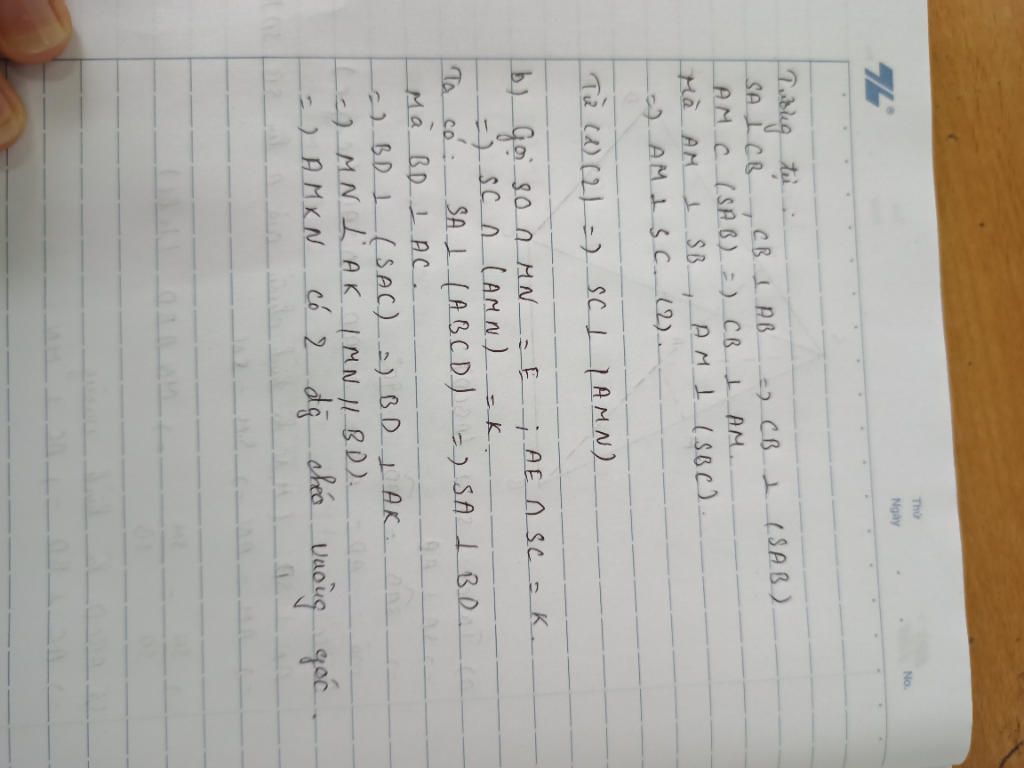 Thứ
Ngày
No.
Tương tự:
SA ⊥ CB, CB ⊥ AB => CB ⊥ (SAB)
AM ⊂ (SAB) => CB ⊥ AM.
Mà AM ⊥ SB, AM ⊥ (SBC).
=> AM ⊥ SC. (2).
Từ (1)(2) => SC ⊥ (AMN)
b) Gọi SO ∩ MN = E ; AE ∩ SC = K.
=> SC ∩ (AMN) = K.
Ta có: SA ⊥ (ABCD) => SA ⊥ BD.
Mà BD ⊥ AC.
=> BD ⊥ (SAC) => BD ⊥ AK.
=> MN ⊥ AK (MN // BD).
=> AMKN có 2 đg chéo vuông góc.